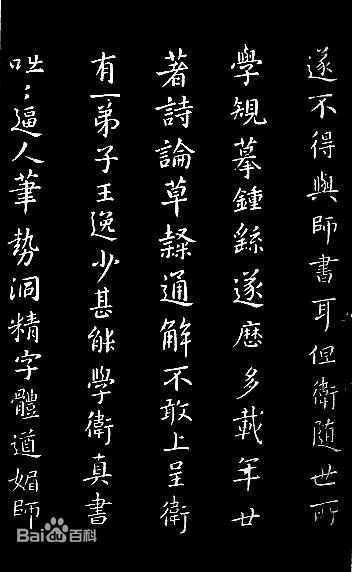 遂不得與師書耳但衛隨世所
學規摹鍾繇遂歷多載年廿
著詩論草隸通解不敢上呈衛
有一弟子王逸少甚能學衛真書
咄咄逼人筆勢洞精字體遒媚師
Bai百科